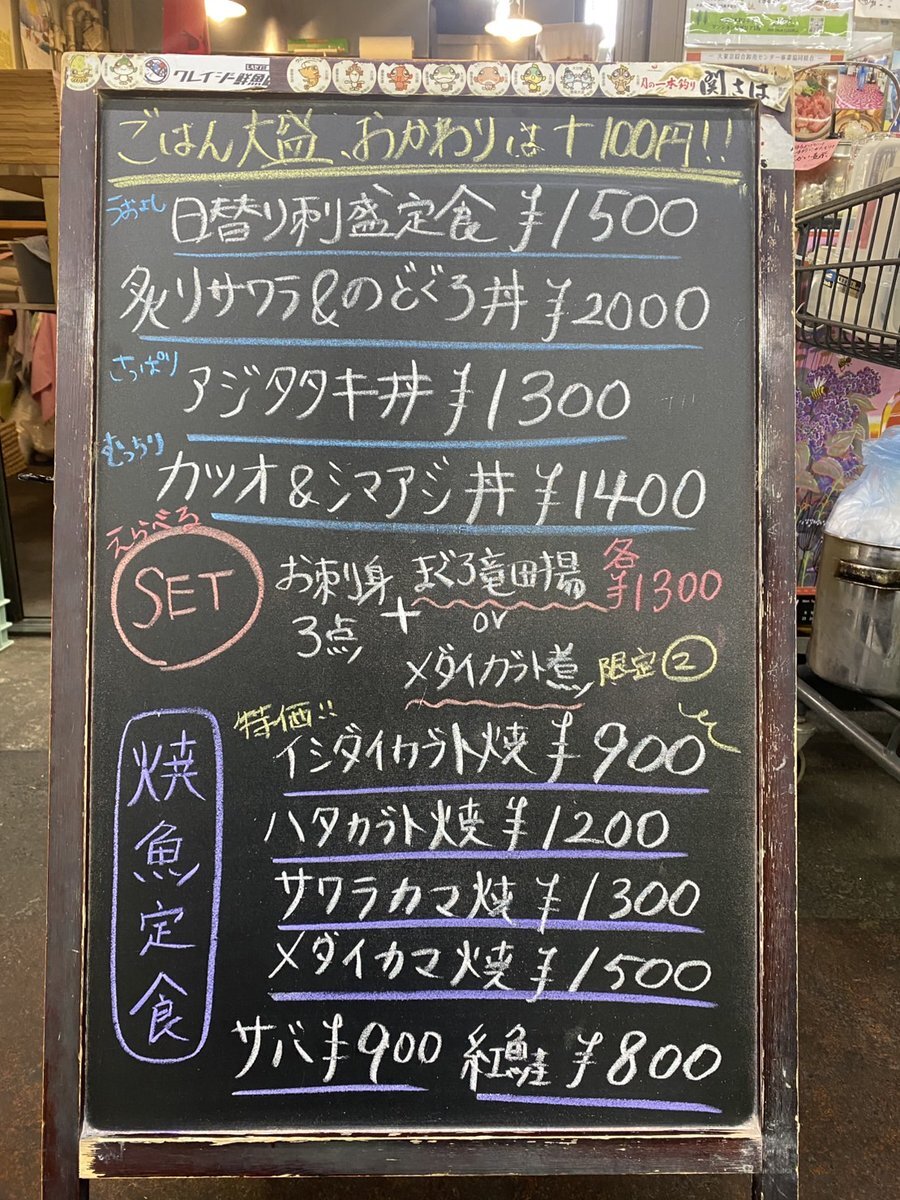 クレイジー鮮魚
月の一本釣り 関さば
ごはん大盛、おかわりは+100円!!
うおよし
日替り刺盛定食 ¥1500
炙りサワラ&のどぐろ丼 ¥2000
さっぱり
アジタタキ丼 ¥1300
むっちり
カツオ&シマアジ丼 ¥1400
えらべる
SET
お刺身3点
+
まぐろ竜田揚
or
メダイカブト煮
各¥1300
限定②
焼魚定食
特価!!
イシダイカブト焼 ¥900
ハタカブト焼 ¥1200
サワラカマ焼 ¥1300
メダイカマ焼 ¥1500
サバ ¥900 紅鮭 ¥800